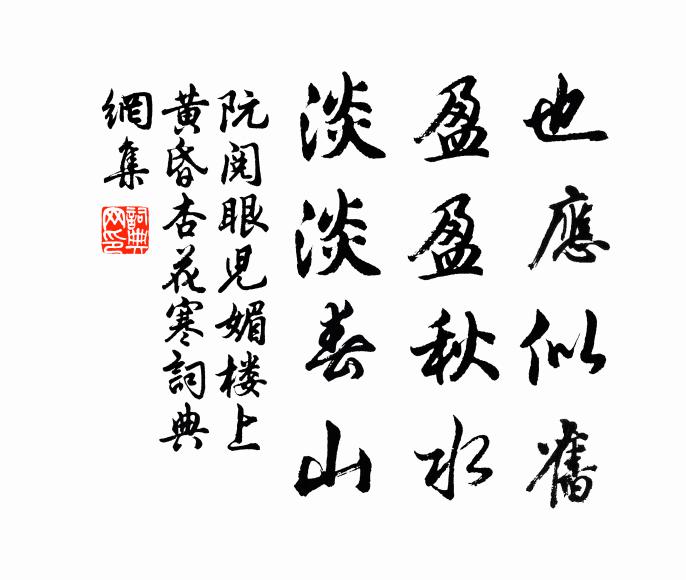 也應似舊
盈盈秋水
淡淡春山
阮閱眼児媚楼上
黄昏杏花寒詞典
網集
詞典
网印